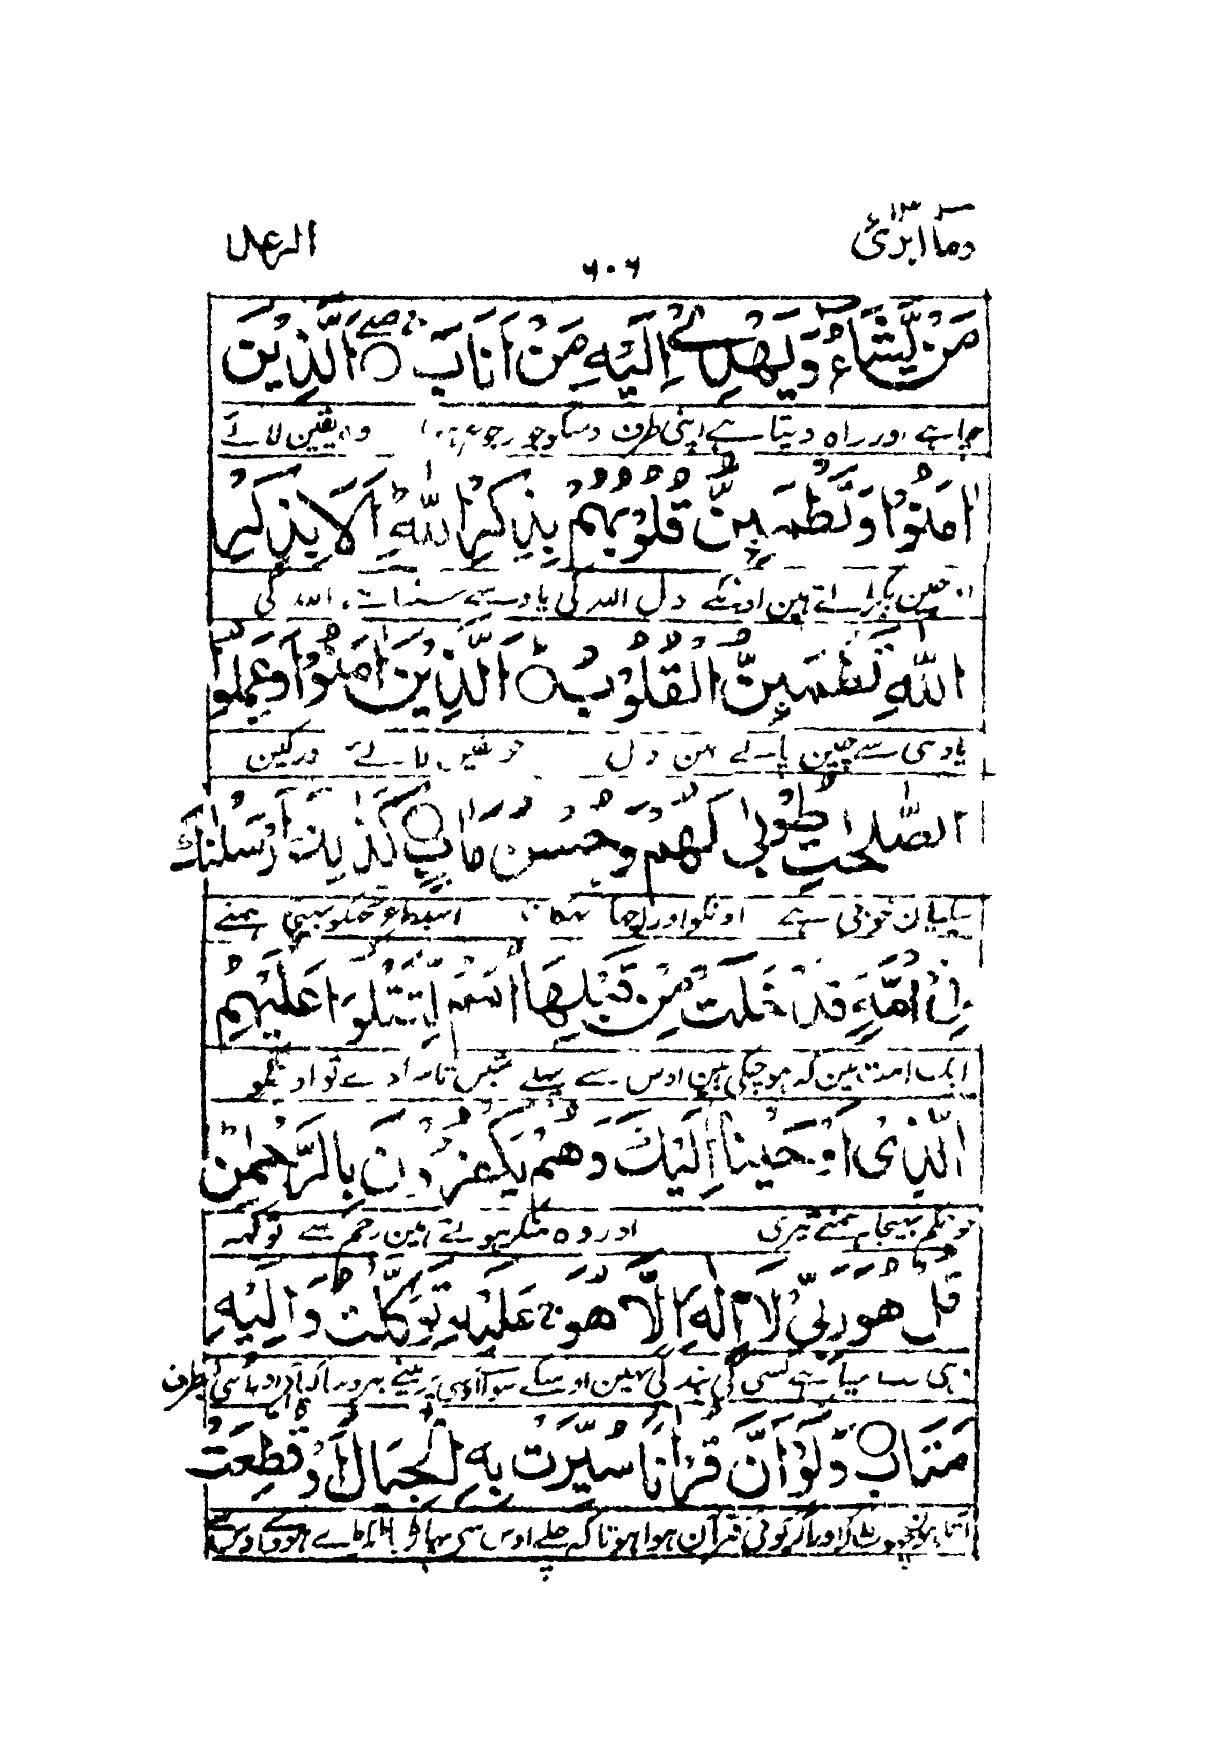 وما ابرئ ١٣
٦٠٦
الرعد
مَنْ يَّشَآءُ وَيَهْدِيْٓ اِلَيْهِ مَنْ اَنَابَ ○ اَلَّذِيْنَ
چاہے اور راہ دیتا ہے اپنی طرف اوسکو جو رجوع ہوا وہ یقین لائے
اٰمَنُوْا وَتَطْمَىِٕنُّ قُلُوْبُهُمْ بِذِكْرِ اللّٰهِ ؕ اَلَا بِذِكْرِ
چین پاتے ہین اونکے دل اللہ کی یاد سے سنتا ہے اللہ کی
اللّٰهِ تَطْمَىِٕنُّ الْقُلُوْبُ ؕ○ اَلَّذِيْنَ اٰمَنُوْا وَعَمِلُوا
یاد ہی سے چین پاتے ہین دل جو یقین لائے اور کین
الصّٰلِحٰتِ طُوْبٰى لَهُمْ وَحُسْنُ مَاٰبٍ ○ كَذٰلِكَ اَرْسَلْنٰكَ
نیکیان خوبی ہے اونکو اور اچھا ٹھکانا اسیطرح تجکو بھیجا ہمنے
فِيْٓ اُمَّةٍ قَدْ خَلَتْ مِنْ قَبْلِهَآ اُمَمٌ لِّتَتْلُوَا۟ عَلَيْهِمُ
ایک امت مین کہ ہو چکی ہین اوس سے پہلے امتین تا سنادے تو اونکو
الَّذِيْٓ اَوْحَيْنَآ اِلَيْكَ وَهُمْ يَكْفُرُوْنَ بِالرَّحْمٰنِ ؕ
جو حکم بھیجا ہمنے تیری اور وہ منکر ہوتے ہین رحمن سے تو کہہ
قُلْ هُوَ رَبِّيْ لَآ اِلٰهَ اِلَّا هُوَ ۚ عَلَيْهِ تَوَكَّلْتُ وَاِلَيْهِ
وہی رب میرا ہے کسی کی بندگی نہین اوسکے سوا اوسی پر مینے بھروسا کیا اور اوسی طرف
مَتَابِ ○ وَلَوْ اَنَّ قُرْاٰنًا سُيِّرَتْ بِهِ الْجِبَالُ اَوْ قُطِّعَتْ
آتا ہون چھوٹ کر اور اگر کوئی قرآن ہوا ہوتا کہ چلے اوس سے پہاڑ یا ٹکڑے ہووے اوس سے